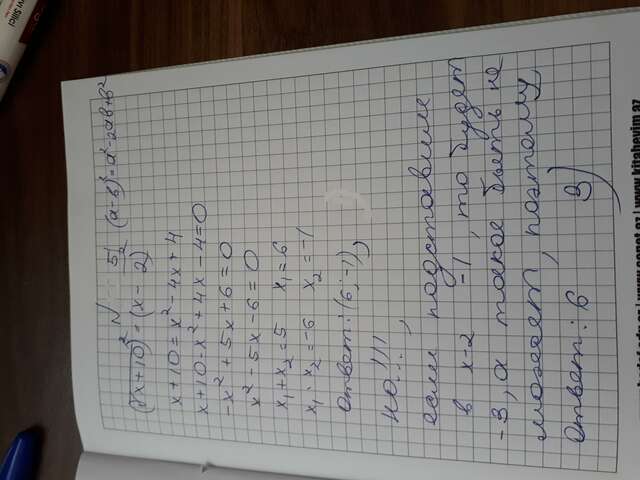 N 51 (a-b)²=a²-2ab+b²
(√x+10)²=(x-2)²
x+10=x²-4x+4
x+10-x²+4x-4=0
-x²+5x+6=0
x²-5x-6=0
x₁+x₂=5 x₁=6
x₁·x₂=-6 x₂=-1
Ответ:(6;-1)
но...!!!
если подставим
в x-2 -1, то будет
-3, а такое быть не
может, поэтому
Ответ:6 3)
www.kitabevim.az